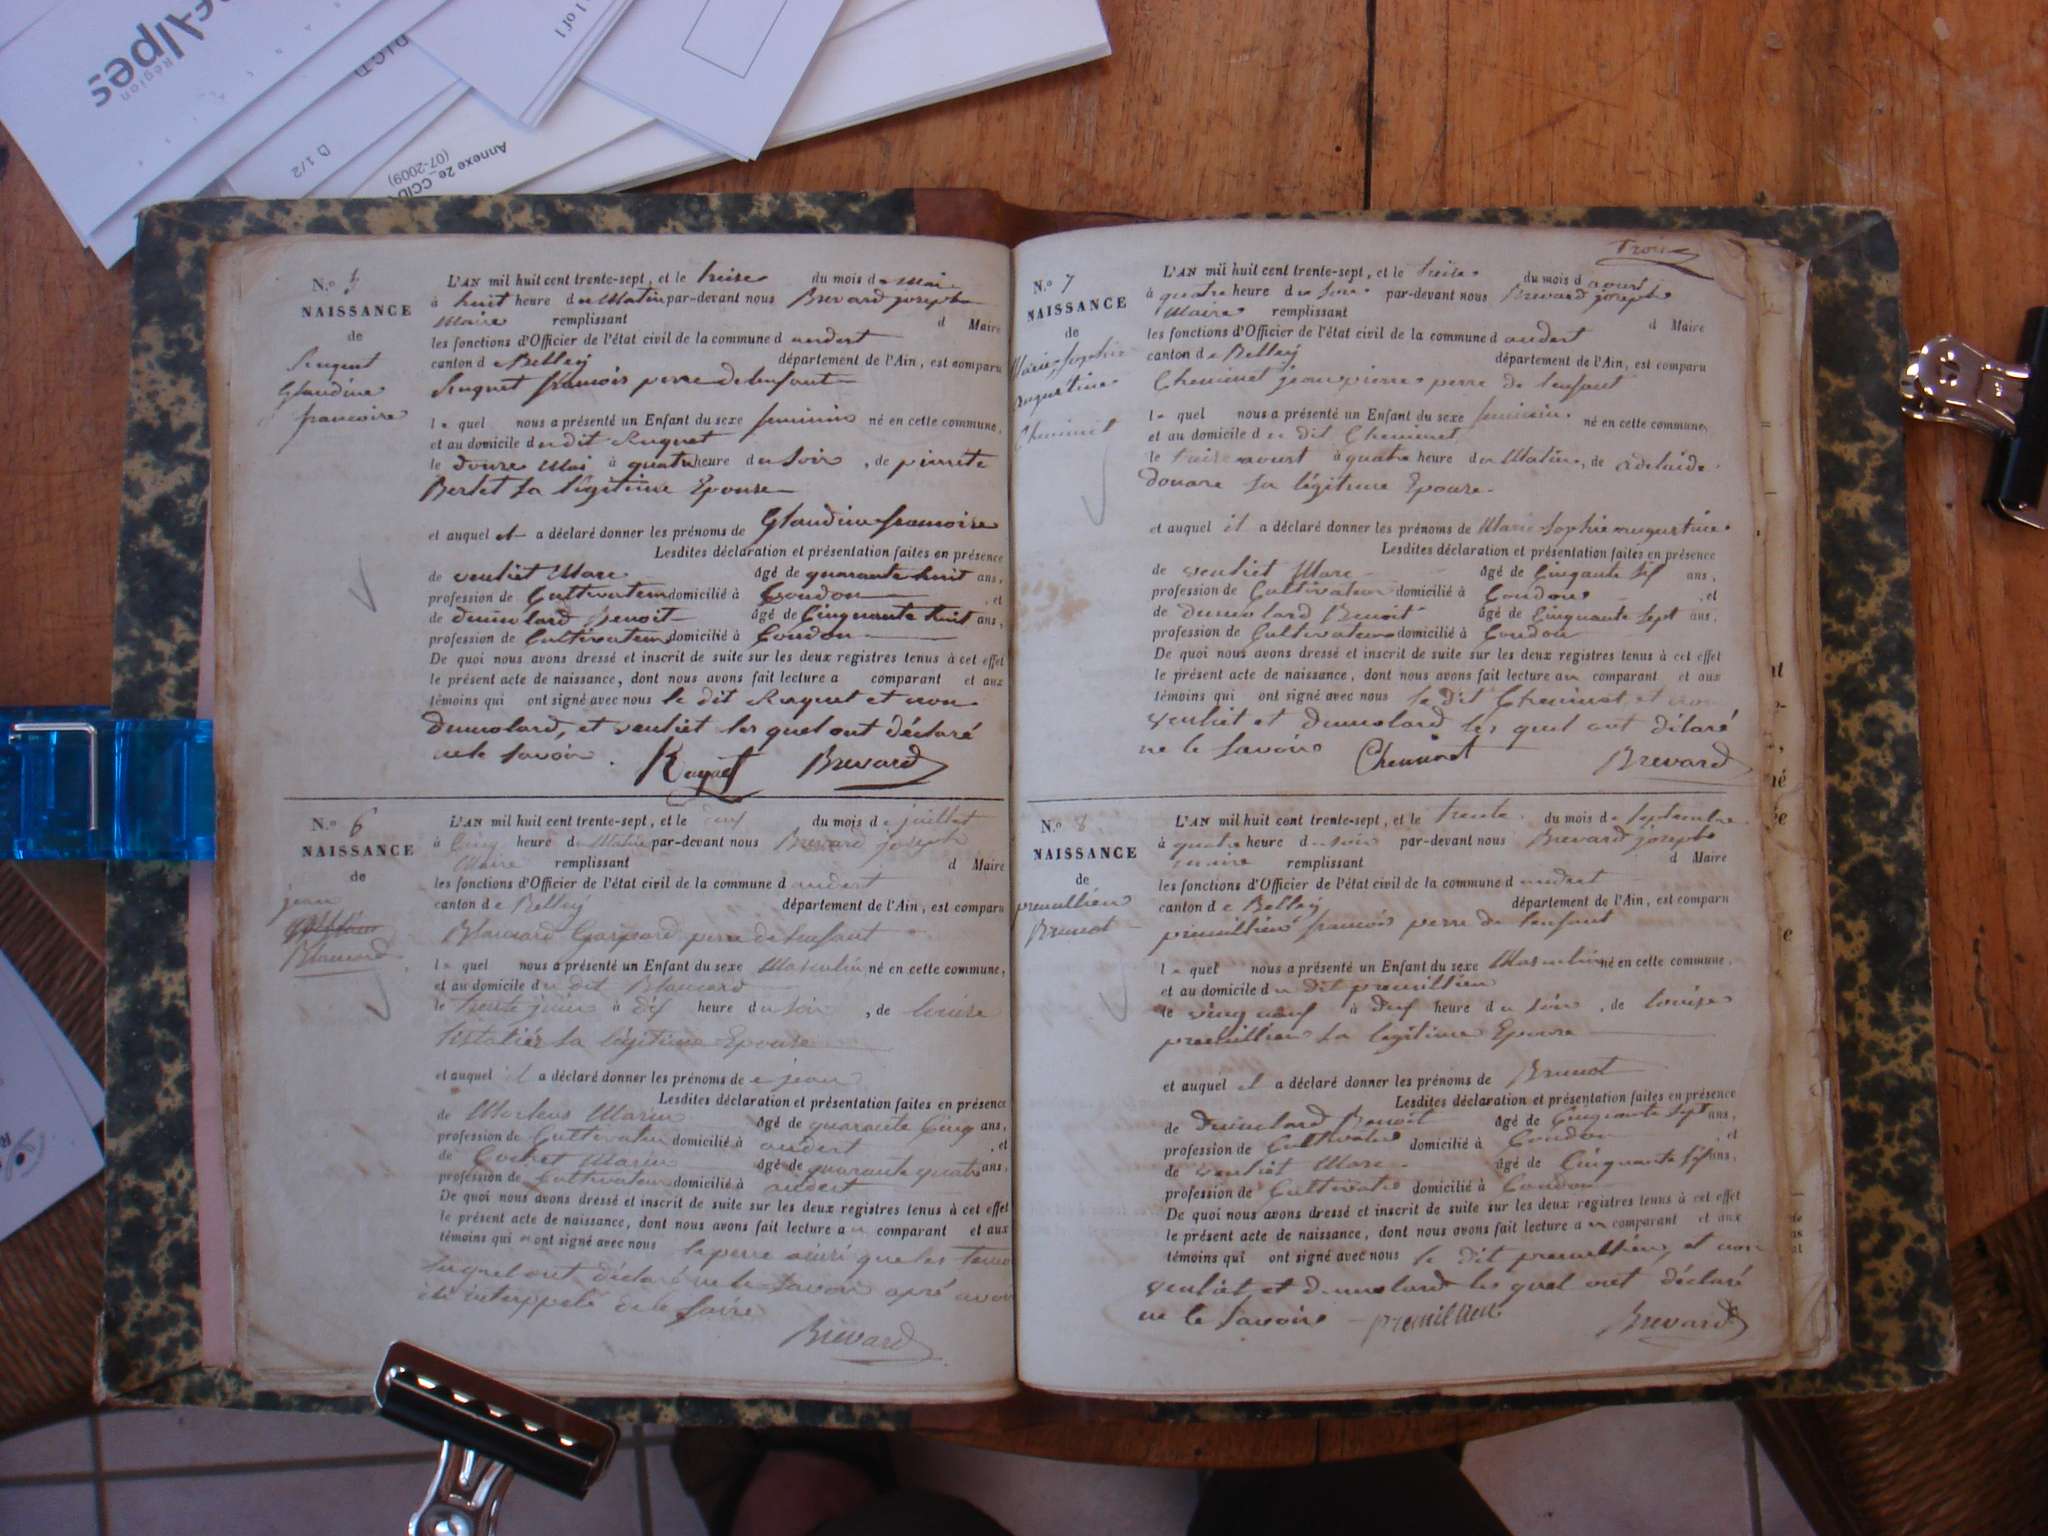 Région
Alpes
D I C D
1 of 1
D 1/2
Annexe 2e_CCID
(07-2009)
N.o 5
NAISSANCE
de
Ruquet
Glaudine
francoise
L'AN mil huit cent trente-sept, et le treise du mois d e Mai
à huit heure d u Matin par-devant nous Brevard joseph
Maire remplissant d Maire
les fonctions d'Officier de l'état civil de la commune d andert
canton d e Belley département de l'Ain, est comparu
Ruquet francois perre de lenfant
l e quel nous a présenté un Enfant du sexe feminin né en cette commune,
et au domicile d u dit Ruquet
le douse Mai à quatre heure d u Soir, de pierrete
Bertet sa légitime Epouse
et auquel il a déclaré donner les prénoms de Glaudine francoise
Lesdites déclaration et présentation faites en présence
de veuliet Marc âgé de quarante huit ans,
profession de Cultivateur domicilié à Condon, et
de dumolard Benoit âgé de Cinquante huit ans,
profession de Cultivateur domicilié à Condon
De quoi nous avons dressé et inscrit de suite sur les deux registres tenus à cet effet
le présent acte de naissance, dont nous avons fait lecture a comparant et aux
témoins qui ont signé avec nous le dit Ruquet et non
dumolard, et veuliet les quel ont déclaré
ne le savoir. Ruquet Brevard
N.o 6
NAISSANCE
de
jean
Blancard
L'AN mil huit cent trente-sept, et le du mois d e juillet
à Cinq heure d u Matin par-devant nous Brevard joseph
Maire remplissant d Maire
les fonctions d'Officier de l'état civil de la commune d andert
canton d e Belley département de l'Ain, est comparu
Blancard Gaspard perre de lenfant
l e quel nous a présenté un Enfant du sexe Masculin né en cette commune,
et au domicile d u dit Blancard
le trente juin à dix heure d u soir, de louise
sa légitime Epouse
et auquel il a déclaré donner les prénoms de jean
Lesdites déclaration et présentation faites en présence
de Marin âgé de quarante Cinq ans,
profession de Cultivateur domicilié à andert, et
de Cochet Marin âgé de quarante quatre ans,
profession de Cultivateur domicilié à andert
De quoi nous avons dressé et inscrit de suite sur les deux registres tenus à cet effet
le présent acte de naissance, dont nous avons fait lecture a u comparant et aux
témoins qui ont signé avec nous le perre ainsi que les
lequel ont déclaré ne le savoir apré avoir
été interppelé de le faire
Brevard
Trois
N.o 7
NAISSANCE
de
Marie, Sophie
augustine
Cheminet
L'AN mil huit cent trente-sept, et le treise du mois d aoust
à quatre heure d u soir par-devant nous Brevard joseph
Maire remplissant d Maire
les fonctions d'Officier de l'état civil de la commune d andert
canton d e Belley département de l'Ain, est comparu
Cheminet jean pierre perre de lenfant
l e quel nous a présenté un Enfant du sexe feminin né en cette commune,
et au domicile d u dit Cheminet
le treise aoust à quatre heure d u Matin, de adelaide
douare sa légitime Epouse
et auquel il a déclaré donner les prénoms de Marie Sophie augustine
Lesdites déclaration et présentation faites en présence
de veuliet Marc âgé de Cinquante sif ans,
profession de Cultivateur domicilié à Condon, et
de dumolard Benoit âgé de Cinquante sept ans,
profession de Cultivateur domicilié à Condon
De quoi nous avons dressé et inscrit de suite sur les deux registres tenus à cet effet
le présent acte de naissance, dont nous avons fait lecture a u comparant et aux
témoins qui ont signé avec nous le dit Cheminet et non
veuliet et dumolard les quel ont délaré
ne le savoir Cheminet Brevard
N.o 8
NAISSANCE
de
premillieu
Brunot
L'AN mil huit cent trente-sept, et le trente du mois d e septembre
à quatre heure d u soir par-devant nous Brevard joseph
maire remplissant d Maire
les fonctions d'Officier de l'état civil de la commune d andert
canton d e Belley département de l'Ain, est comparu
premillieu francois perre de lenfant
l e quel nous a présenté un Enfant du sexe Masculin né en cette commune,
et au domicile d u dit premillieu
le ving neuf à heure d u soir, de louise
premillieu sa légitime Epouse
et auquel il a déclaré donner les prénoms de Brunot
Lesdites déclaration et présentation faites en présence
de dumolard Benoit âgé de Cinquante sept ans,
profession de Cultivateur domicilié à Condon, et
de veuliet Marc âgé de Cinquante sif ans,
profession de Cultivateur domicilié à Condon
De quoi nous avons dressé et inscrit de suite sur les deux registres tenus à cet effet
le présent acte de naissance, dont nous avons fait lecture a u comparant et aux
témoins qui ont signé avec nous le dit premillieu, et non
veuliet et dumolard les quel ont déclaré
ne le savoir premillieu Brevard